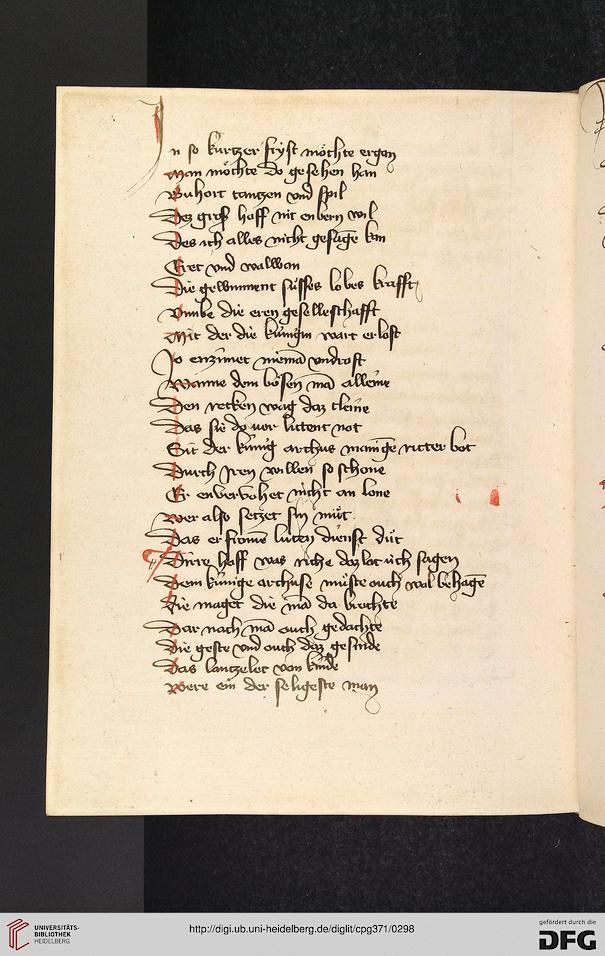 In so kurtzer fryst möchte ergen
Man möchte do gesehen han
Buhort tantzen vnd spil
Dez groß hoff nit enbern wil
Des ich alles nicht gesagē kan
Eret vnd
Die gewinnent süsses lobes krafft
Vmbe die eren geselleschafft
Mit der die künigin wart erlost
Jo enzimet niemā vndrost
Wanne dem bösen mā alleine
Den recken wag daz cleine
Das sie do vor littent not
Sit der künig arthus manigē ritter bot
Durch Iren willen so schone
Er nicht on lone
Wer also setzet sin müt
Das er fromē luten dienst düt
Dirre hoff was riche daz lot üch sagen
Dem künige arthuse müste ouch wal behagē
Die maget die mā da brochte
Dar nach mā ouch gedachte
Die geste vnd ouch daz gesinde
Das lantzelet von kinde
Were ein der seligeste man
UNIVERSITÄTS-
BIBLIOTHEK
HEIDELBERG
http://digi.ub.uni-heidelberg.de/diglit/cpg371/0298
gefördert durch die
DFG